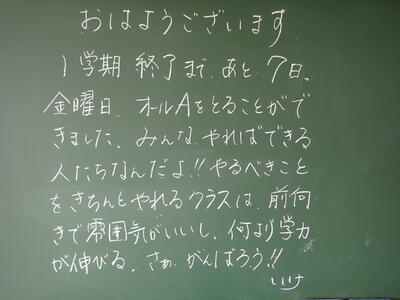 おはようございます
1学期 終了まで、あと 7日、
金曜日、オールAをとることがで
きました、みんな、やればできる
人たちなんだよ!! やるべきこと
をきちんとやれるクラスは、前向
きで雰囲気がいいし、何より学力
が伸びる、さぁ、がんばろう!!